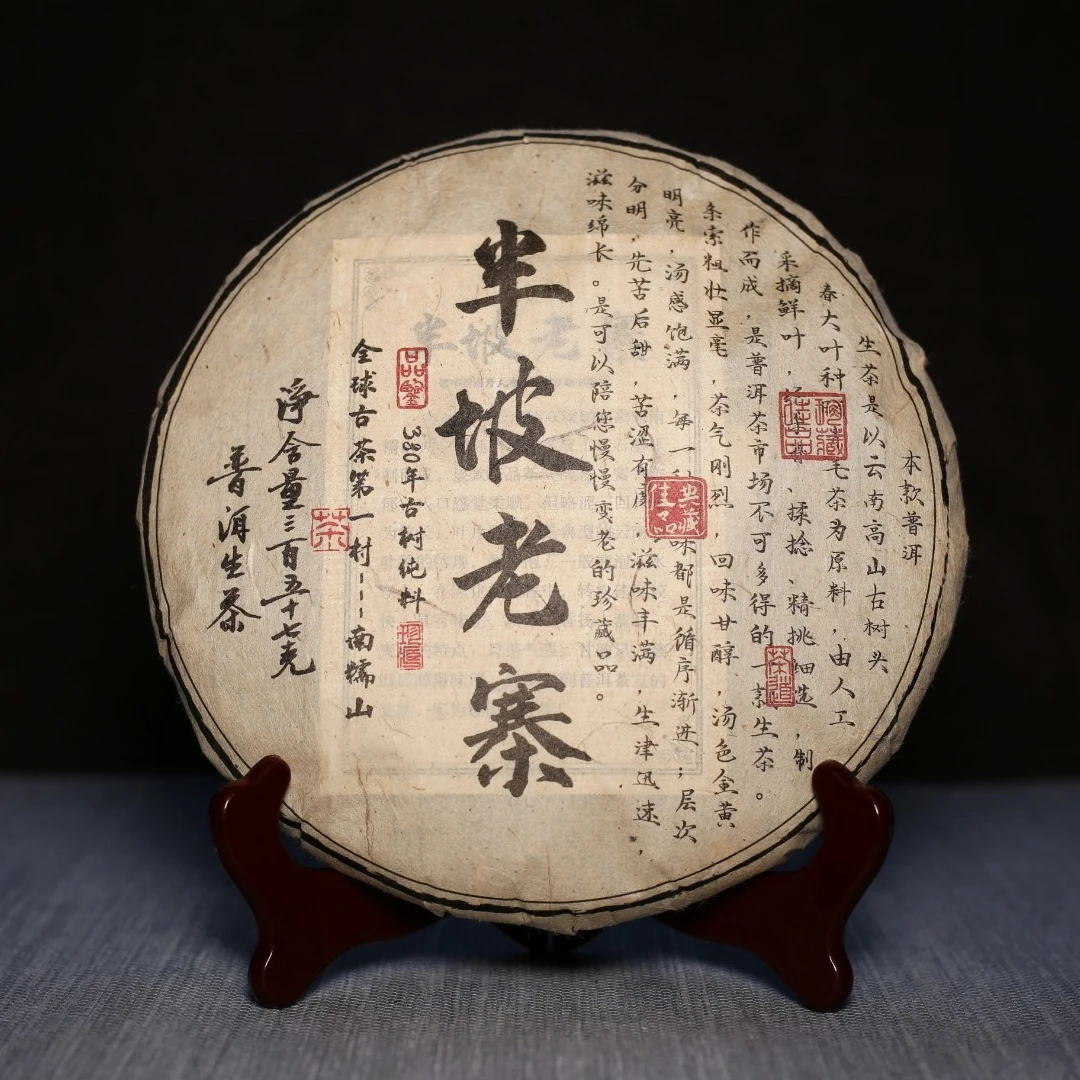 本款普洱
生茶是以云南高山古树头
春大叶种毛茶为原料，由人工
采摘鲜叶，、揉捻、精挑细选，制
作而成，是普洱茶市场不可多得的一款生茶。
条索粗壮显毫，茶气刚烈，回味甘醇，汤色金黄
明亮，汤感饱满，每一种味都是循序渐进；层次
分明，先苦后甜，苦涩有度，滋味丰满，生津迅速，
滋味绵长。是可以陪您慢慢变老的珍藏品。
茶道
典藏佳品
半坡老寨
品鑒
380年古树纯料
全球古茶第一村---南糯山
茶
净含量三百五十七克
普洱生茶